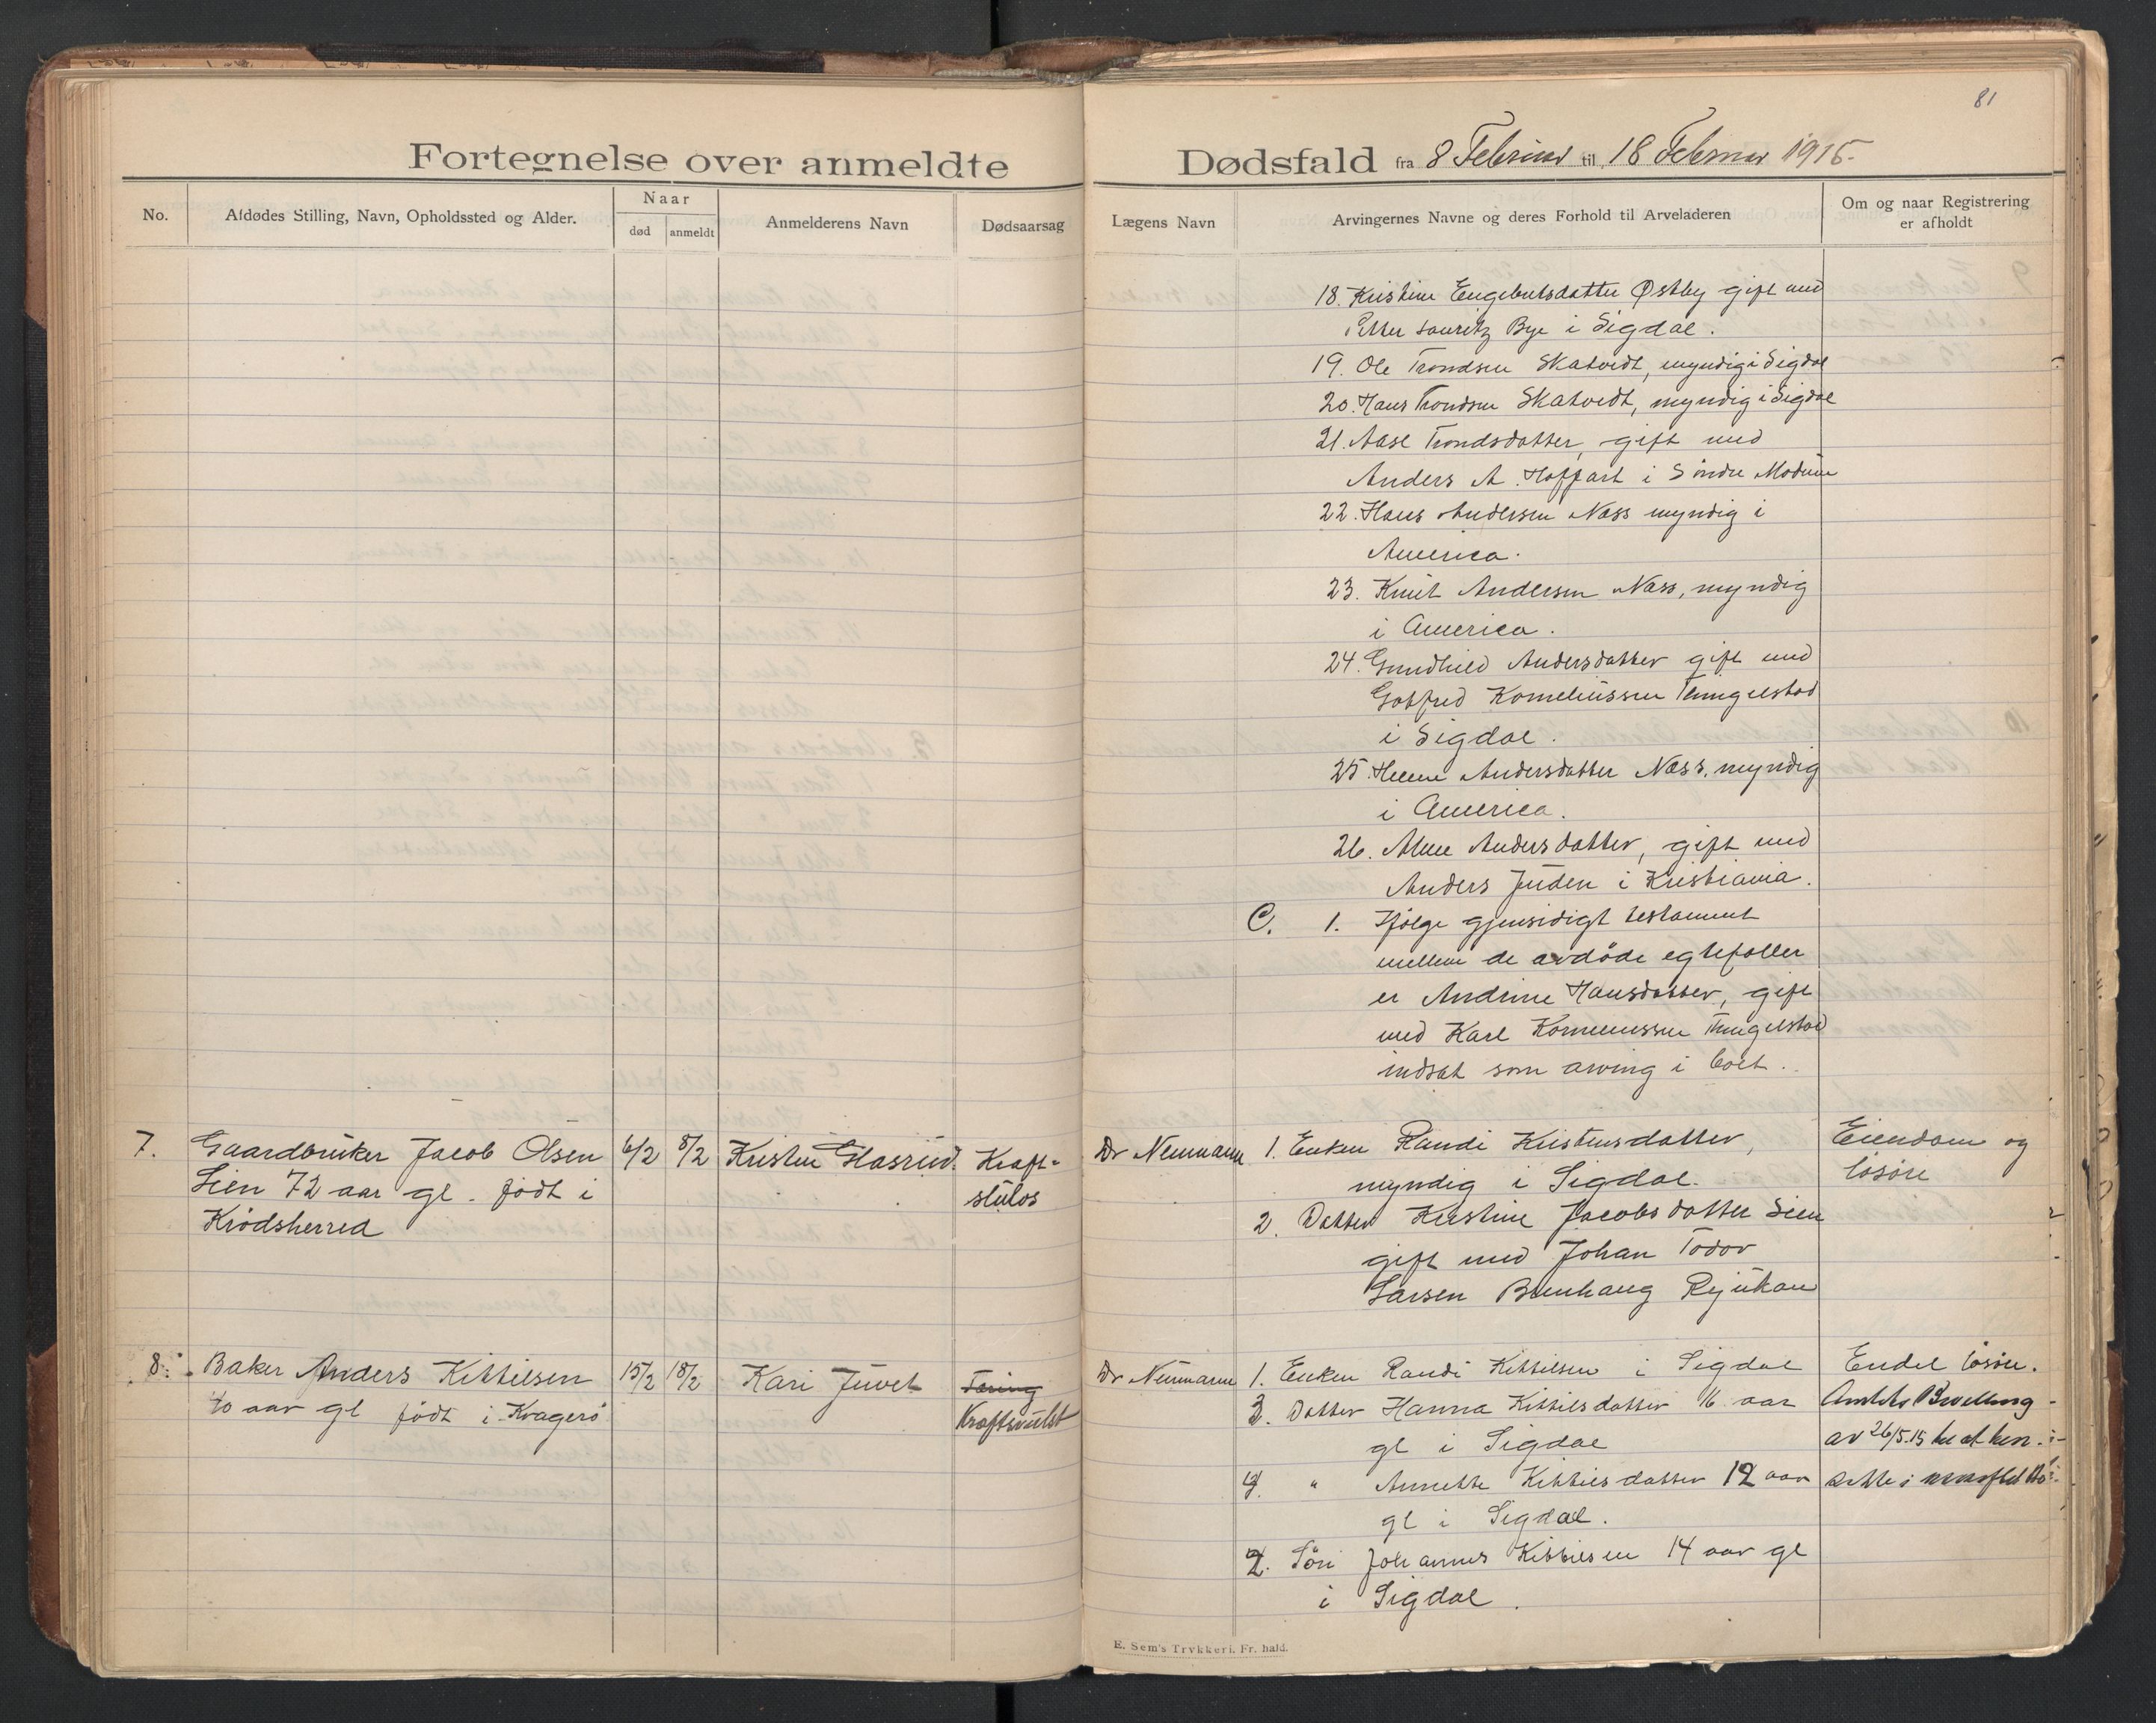 81
Fortegnelse over anmeldte
Dødsfald fra 8 Februar til 18 Februar 1915.
No.
Afdødes Stilling, Navn, Opholdssted og Alder.
Naar
død
anmeldt
Anmelderens Navn
Dødsaarsag
Lægens Navn
Arvingernes Navne og deres Forhold til Arveladeren
Om og naar Registrering
er afholdt
18. Kristine Engebretsdatter Østby gift med
Petter Lauritz Bye i Sigdal.
19. Ole Trondsen Skatvedt, myndig i Sigdal
20. Hans Trondsen Skatvedt, myndig i Sigdal
21. Aase Trondsdatter, gift med
Anders A. Hoffart i Søndre Modum
22. Hans Andersen Næss myndig i
America.
23. Knut Andersen Næss, myndig
i America.
24. Gundhild Andersdatter gift med
Gotfred Korneliussen Thingelstad
i Sigdal.
25. Helene Andersdatter Næss, myndig
i America.
26. Andersdatter, gift med
Anders Juden i Kristiania.
C. 1. Ifølge gjensidigt testament
mellem de avdøde egtefæller
er Andrine Hansdatter, gift
med Karl Korneliussen Thingelstad
indsat som arving i boet.
7.
Gaardbruker Jacob Olsen
Lien 72 aar gl. født i
Krødsherred
6/2
8/2
Kristen Glasrud.
Kræft-
svulos
Dr Neumann
1. Enken Randi Kristensdatter,
myndig i Sigdal.
2. Datter Kristine Jacobsdatter Lien
gift med Johan Todor
Larsen Rjukan
Eiendom og
løsøre
8.
Baker Anders Kittilsen
40 aar gl født i Kragerø
15/2
18/2
Kari Juvet
Tæring
Kræftsvulst
Dr Neumann
1. Enken Randi Kittilsen i Sigdal
2. Datter Hanna Kittilsdatter 16 aar
gl i Sigdal
4. " Annette Kittilsdatter 12 aar
gl i Sigdal.
3. Søn Johannes Kittilsen 14 aar gl
i Sigdal.
Endel løsøre.
Amtets Bevilling
av 26/5.15 til at hen-
sitte i uskiftet bo.
E. Sem's Trykkeri. Fr. hald.